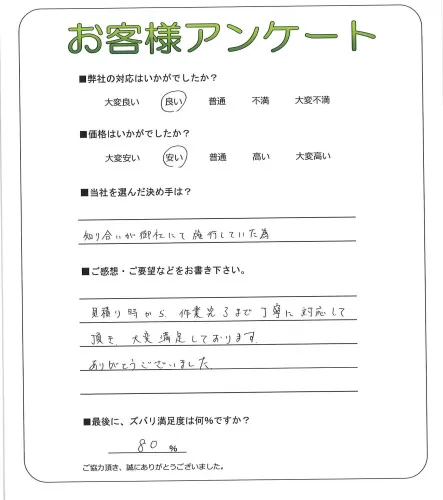 お客様アンケート
■弊社の対応はいかがでしたか?
大変良い 良い 普通 不満 大変不満
■価格はいかがでしたか?
大変安い 安い 普通 高い 大変高い
■当社を選んだ決め手は?
知り合いが御社にて施行していた為
■ご感想・ご要望などをお書き下さい。
見積り時から、作業完了まで丁寧に対応して
頂き、大変満足しております。
ありがとうございました。
■最後に、ズバリ満足度は何%ですか?
80 %
ご協力頂き、誠にありがとうございました。